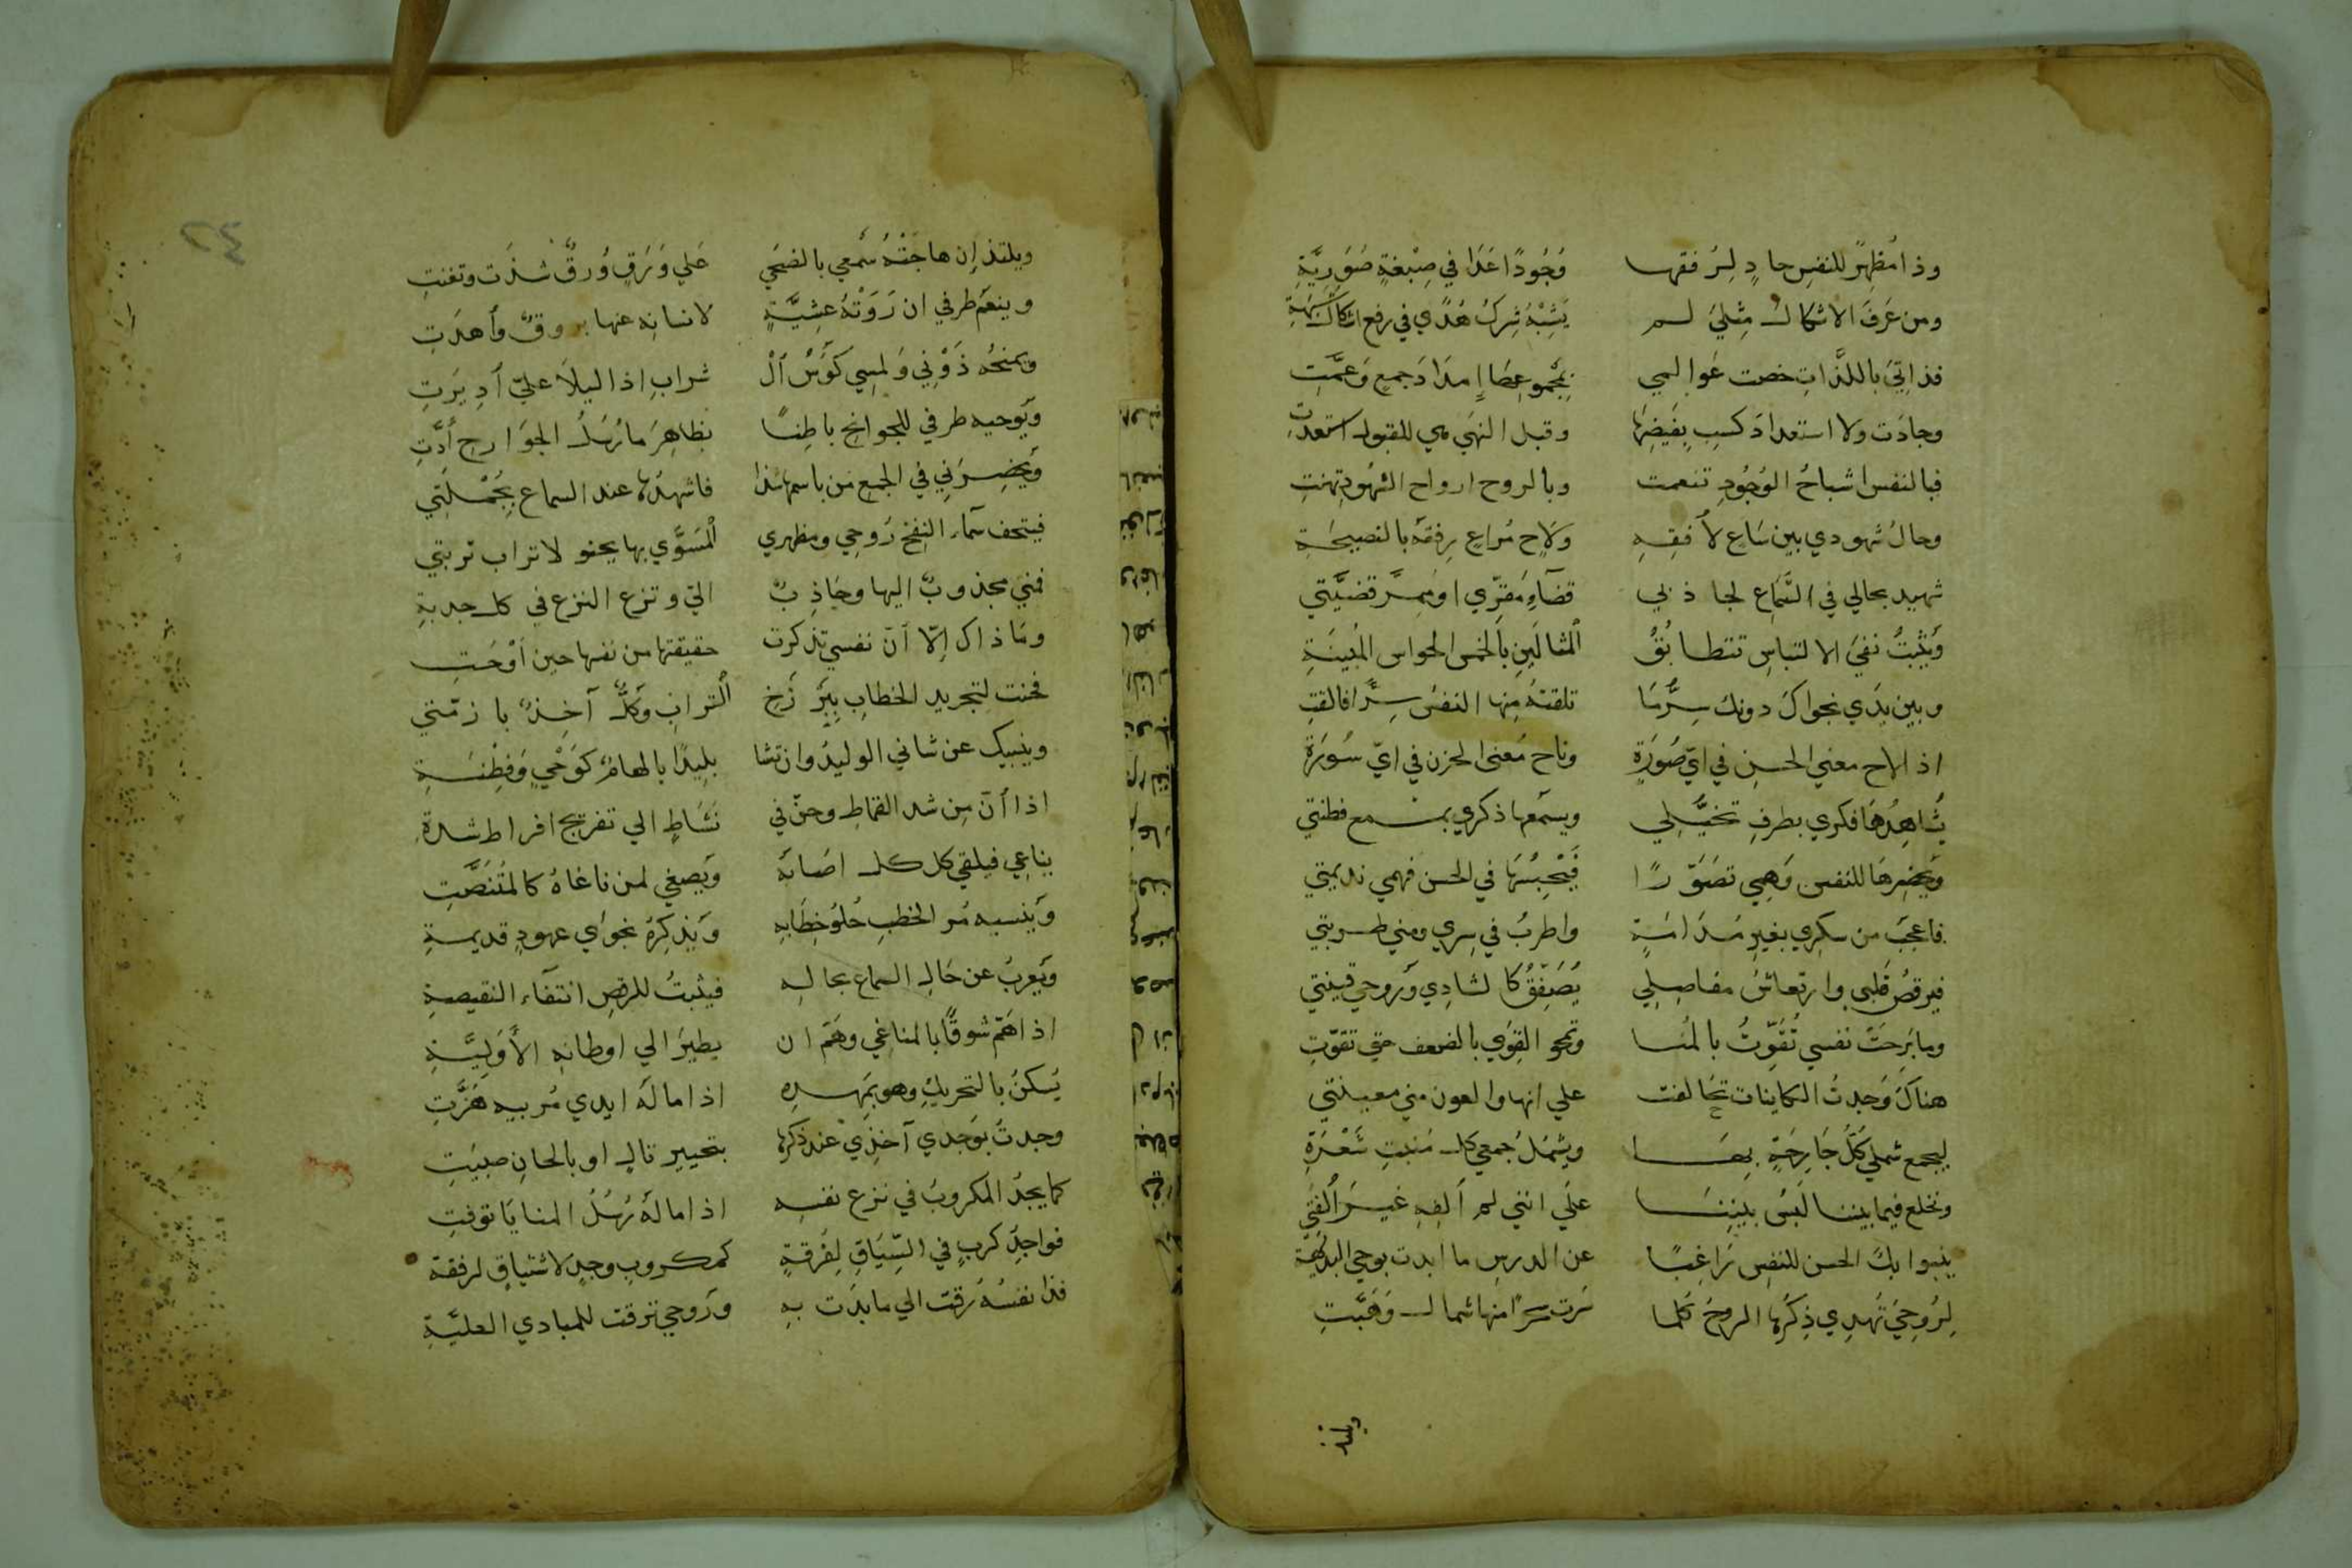 وذا مُظهِرٌ للنفسِ حادٍ لِرُفقها وُجُودًا عَدَا في صِبْغةٍ صُوَرِيَّةِ
ومن عَرَفَ الاشكالَ مِثلِيَ لم يَشُبْهُ شِركُ هُدًي في رفع اشكالِ شُبهةِ
فذاتِيَ باللذَّاتِ خصت عَوالمي بمجموعِهَا إمدادَ جمعٍ وَعمَّتِ
وجادَت ولا استعدادَ كسبٍ بِفيضِها وقبل التهَي للقبول استعدَّتِ
فبالنفس اشباحُ الوُجُودِ تنعمت وبالروح ارواح الشهُودِ تهنتِ
وحالُ شهودي بين سَاعٍ لأُفقِهِ ولَاحٍ مُراعٍ رِفقَهُ بالنصيحَةِ
شهيد بحالي في السَّمَاع لجاذبي قضآءِ مَقرّي او مَمرِّ قضيَّتي
وَيُثبِتُ نفيَ الالتباسِ تتطابُقُ ٱلمثالَينِ بالخمس الحواس المُبينَةِ
وبين يَدَي نجواكَ دونك سِرُّمَا تلقتهُ مِنها النفسُ سِرًّا فالقتِ
اذا لاح معني الحسنِ في ايّ صُورَةٍ وناح مَعنى الحزن في ايّ سُورَةِ
يُشاهِدُهَا فكري بطرفِ تخيُّلي ويسمَعها ذكري بمسمع فطنتي
وَيحضِرهَا للنفسِ وَهمِي تصَوّرًا فَيَحْسِبُهَا في الحسن فهمي نديمتي
فاعجَبَ من سكري بغيرِ مُدَامَةٍ واطربُ في سِري ومني طربتي
فيرقصُ قلبي وارتعاشُ مفاصِلي يُصَفِّقُ كالشادِي وَروحي قينتي
وما بَرِحَتْ نفسي تُقَوِّتُ بالمُنا وتمحو القِوَي بالضعف حتي تقوّتِ
هناكَ وَجدتُ الكاينات تحَالفت علي انها والعون مني معينتي
ليجمع شملي كلُّ جَارِحَةٍ بِهَا ويشمُلُ جمعي كل مَنبتِ شَعْرَةِ
وتخلع فيما بيننا لَبسُ بيننَا علَي انني لم أَلفِهِ غيرَ أُلفتي
ينبوا بكَ الحسن للنفسِ رَاغبًا عن الدرسِ ما ابدت بوحي البديهة
لِرُوحِيَ تُهدِي ذِكرُها الروحُ كلما سَرت سحرًا منها شمال وَهَبَّتِ
ويلتذ
ويلتذ إن هاجَتْهُ سَمعي بالضحَي عَلي وَرَقٍ وُرقٌ شدَت وتغنتِ
وينعَم طرفي ان رَوَتْهُ عشِيَّةٍ لانسانه عنها بروقٌ وأهدَتِ
ويمنحُه ذَوْقي وَلمسِي كَؤُسُ ٱلْ شرابِ اذا ليلًا عليّ أدِيرَتِ
وَيُوحيه طرفي للجوانحِ باطِنًا بظاهِرَ مارُسْلُ الجوَارحِ أَدَّتِ
وَيحضِرَنِي في الجمع مَن باسمها شذا فاشهدُها عند السماع بجُمْلَتي
فيتحف سَمآءَ النفخ رَوحِي ومظهري ٱلمُسَوَّي بها يحنو لاتراب تربتي
فمنيَ مجذوبٌ اليها وجَاذِبٌ اليّ ونزع النزع في كل جدبةِ
ومَا ذاك إلّا أنّ نفسي تذكرت حقيقتها من نفسها حين أوْحَت
فحنت لتجريد الخطابِ بِبَرْزَخِ ٱلتراب وكُلٌّ آخِذٌ بازمّتي
وينبيك عن شاني الوليدُ وان نشا بلِيدًا بالهامٍ كوَحْيٍ وَفطْنَةِ
اذا أنّ مِن شد القماطِ وحنّ في نَشاطٍ الي تفريج افراط شدةِ
يناغِي فيلقي كل كلٍ اصَابَهُ ويَصغي لمن ناغاهُ كالمتُنَصَّتِ
وَينسيه مُر الخطبِ حُلوُ خِطَابهِ وَيُذكِرُهُ نجوَي عهودٍ قديمةِ
ويَعربُ عن حَالِ السماع بحاله فيثبتُ للرقصِ انتفآءَ النقيصةِ
اذا هَمّ شوقًا بالمناغي وهَمّ ان يطيرَ الي اوطانهِ الأوّلِيَّةِ
يُسكنُ بالتحريكِ وهو بمَهدِهِ اذا ما لَهُ ايدي مُربيه هَزَّتِ
وجدتُ بوَجدي آخذِي عند ذكرِها بتحبيرِ تالٍ او بالحانِ صيّتِ
كما يجدُ المكروبُ في نزع نفسِه اذا ما لَهُ رُسُلُ المنايَا توفتِ
فواجِدُ كربٍ في السِّيَاقِ لِفُرقةٍ كمكروبِ وجدٍ لاشتياقٍ لرفقة
فذا نفسُهُ رقت الي ما بدَت بهِ ورَوحي ترقت للمبادي العليَّةِ